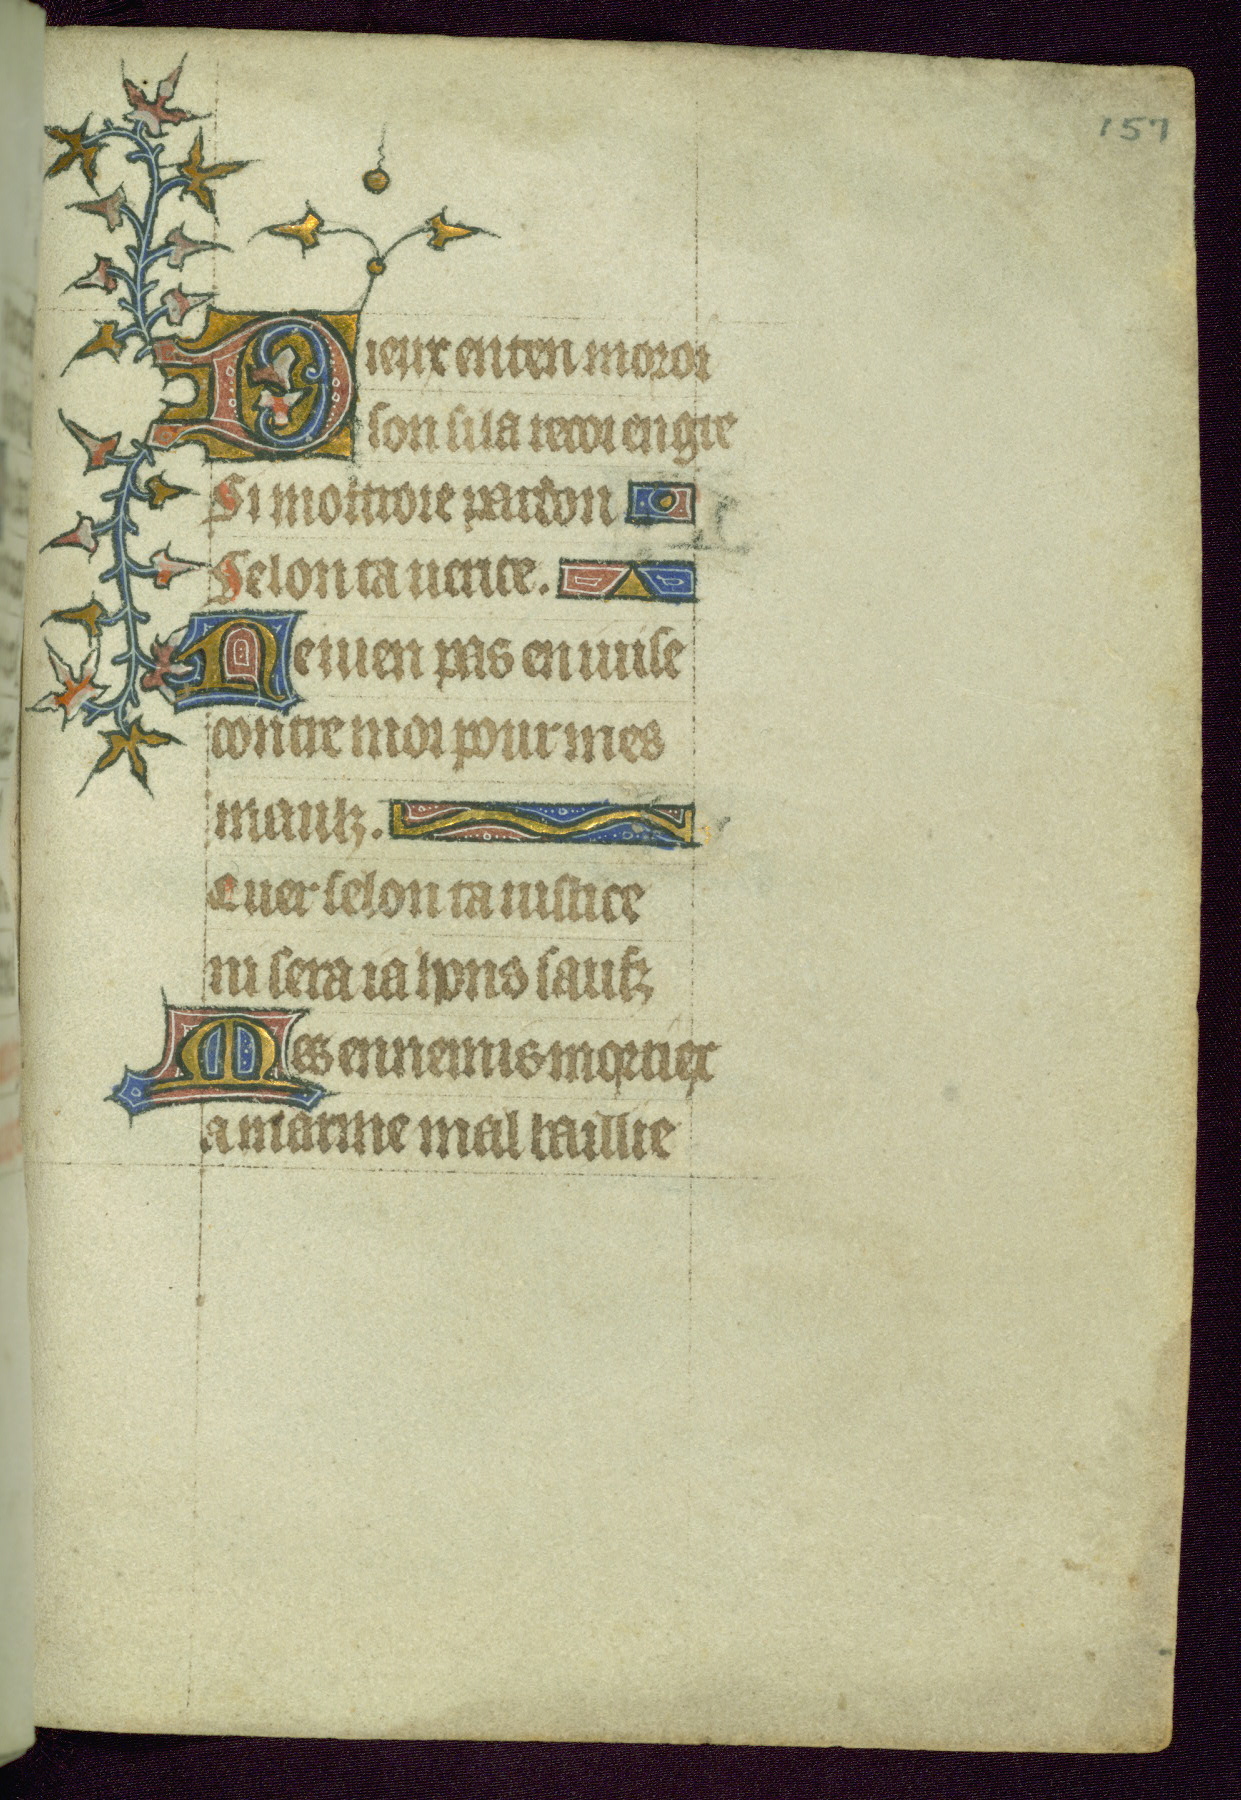 157
Dieux enten moroi
son si la recoi en gre
Si mottroie pardon
Selon ta uerite.
Ne uien pas en iuise
contre moi pour mes
maulz.
Cuer selon ta iustice
ni sera ia hons saulz
Mes ennemis mortiex
a marme mal baillie